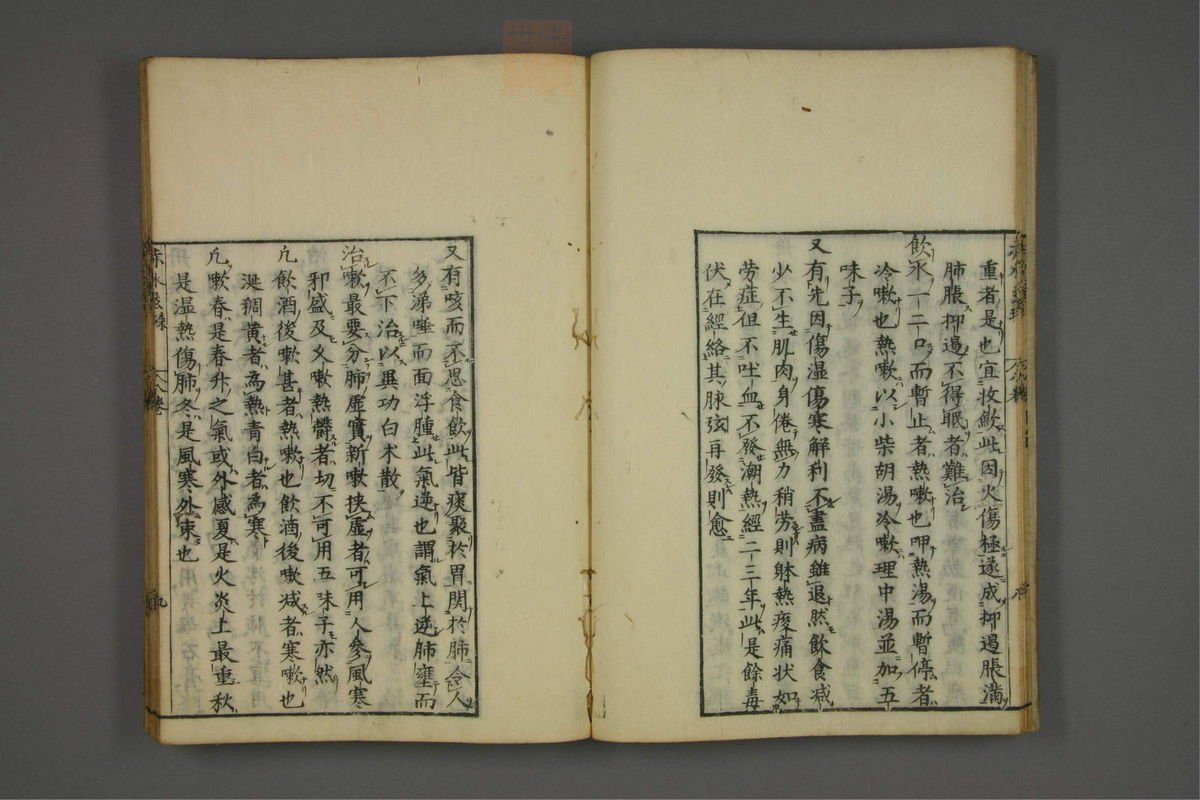 重者是也宜收斂此因火傷極遂成抑遏脹滿
肺脹抑遏不得眠者難治
飲水一二口而暫止者熱嗽也呷熱湯而暫停者
冷嗽也熱嗽以小柴胡湯冷嗽理中湯並加五
味子
又有先因傷湿傷寒解利不盡病雖退然飲食减
少不生肌肉身倦無力稍劳則躰熱痠痛状如
劳症但不吐血不發潮熱經二三年此是餘毒
伏在經絡其脉弦再發則愈
又有咳而不思食飲此皆痰聚於胃関於肺令人
多涕唾而面浮腫此氣逆也謂氣上逆肺壅而
不下治以異功白朮散
治嗽最要分肺虚實新嗽挟虚者可用人參風寒
邪盛及久嗽熱欝者切不可用五味子亦然
凢飲酒後嗽甚者熱嗽也飲酒後嗽减者寒嗽也
涎稠黄者為熱青白者為寒
凢嗽春是春升之氣或外感夏是火炎上最重秋
是湿熱傷肺冬是風寒外束也
赤水玄珠
八卷
九